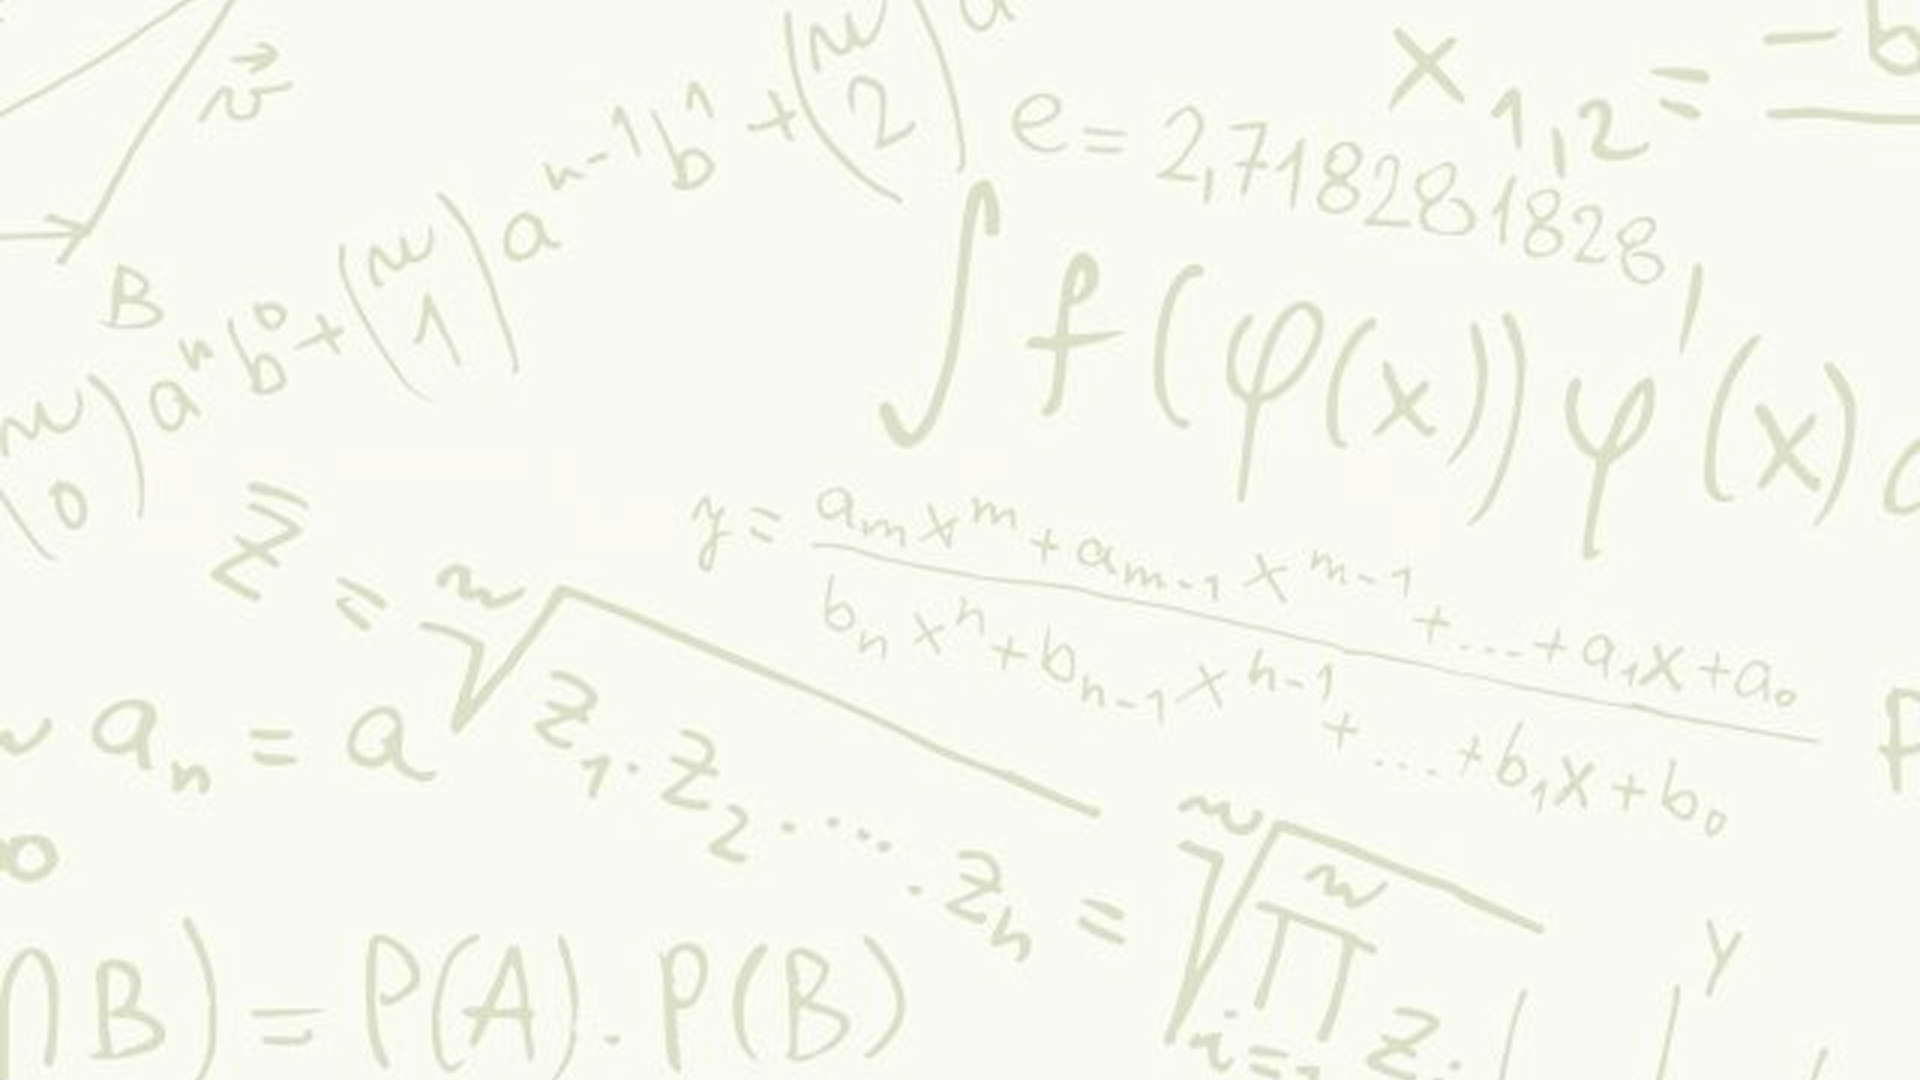 v⃗
B
(n 0) aⁿ b⁰ + (n 1) aⁿ⁻¹ b¹ + (n 2) a
e = 2,718281828
x₁,₂ = −b
∫ f(φ(x)) φ'(x)
y = (aₘxᵐ + aₘ₋₁xᵐ⁻¹ + ... + a₁x + a₀) / (bₙxⁿ + bₙ₋₁xⁿ⁻¹ + ... + b₁x + b₀)
z̿ = ⁿ√(z₁ · z₂ · ... · zₙ) = ⁿ√(∏ⁿ i= z
aₙ = a
P
∩B) = P(A) . P(B)
Y